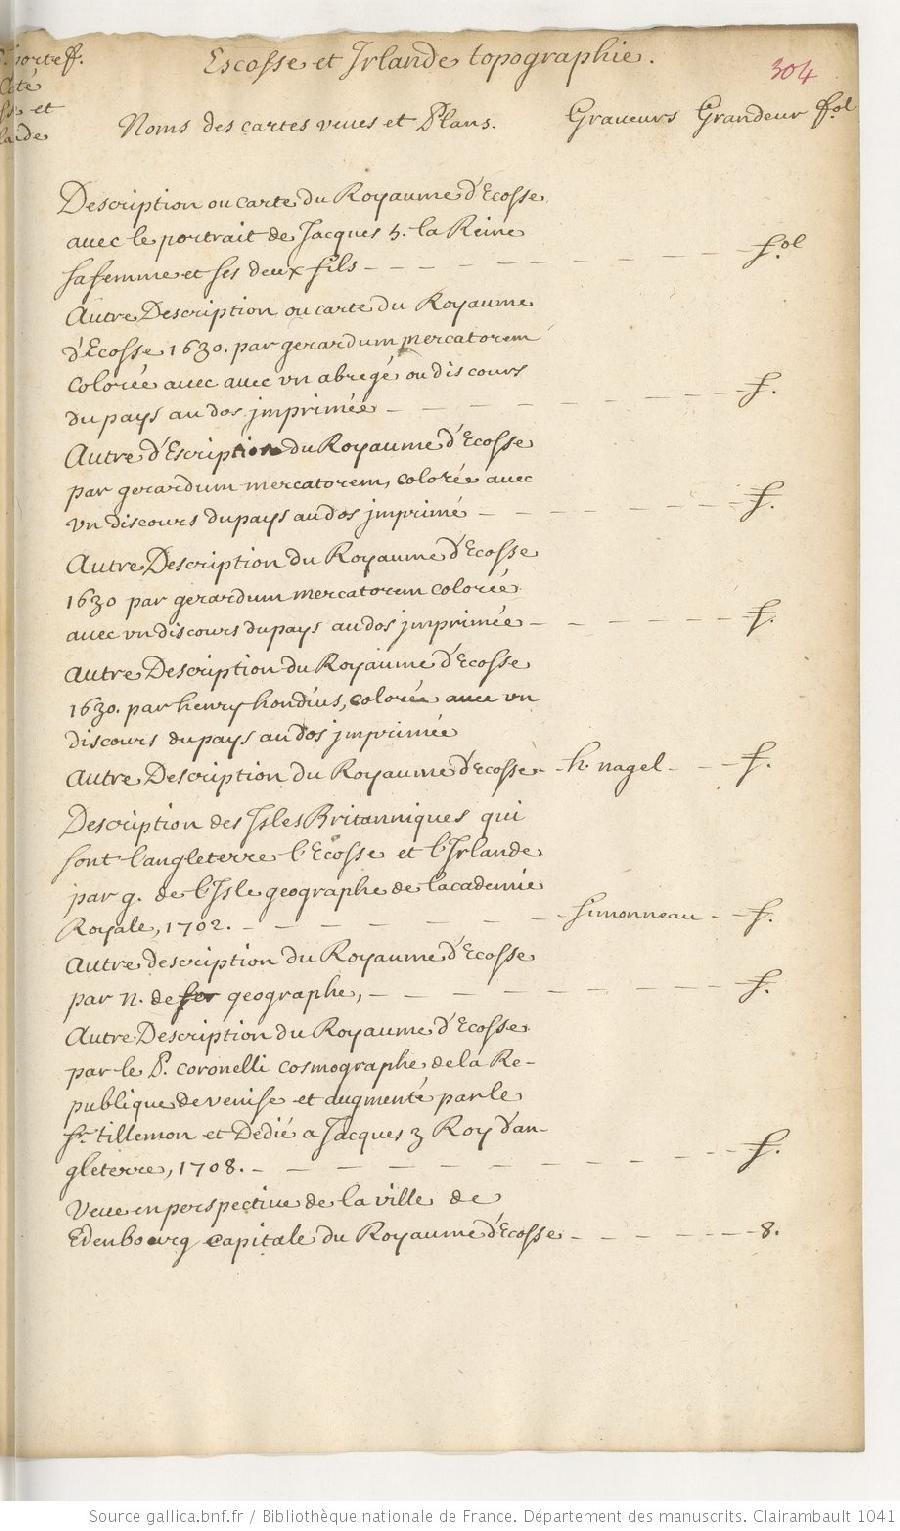 porteff.
Coté
et
lande
Escosse et Irlande topographie.
304
Noms des cartes veues et Plans. Graveurs Grandeur fol
Description ou carte du Royaume d'Ecosse
avec le portrait de Jacques 5. la Reine
sa femme et ses deux fils - - - - - - - - - fol
Autre Description ou carte du Royaume
d'Ecosse 1630. par gerardum mercatorem
colorée avec avec vn abregé ou discours
du pays au dos jmprimée - - - - - - - - f.
Autre d'Escription du Royaume d'Ecosse
par gerardum mercatorem, colorée avec
vn discours du pays au dos jmprimé - - - - - - f.
Autre Description du Royaume d'Ecosse
1630 par gerardum mercatorem colorée
avec vn discours du pays au dos jmprimée - - - - - f.
Autre Description du Royaume d'Ecosse
1630. par henry hondius, colorée avec vn
discours du pays au dos jmprimée
Autre Description du Royaume d'Ecosse - h. nagel - - - f.
Description des Isles Britanniques qui
sont l'angleterre l'Ecosse et l'Irlande
par g. de l'Isle geographe de l'academie
Royale, 1702. - - - - - - - - simonneau - - f.
Autre description du Royaume d'Ecosse
par n. de fer geographe, - - - - - - - - - f.
Autre Description du Royaume d'Ecosse
par le P. coronelli cosmographe de la Re-
publique de venise et augmenté par le
sr. tillemon et Dedié a Jacques 3 Roy d'an-
gleterre, 1708. - - - - - - - - - - f.
Veue en perspective de la ville de
Edenbourg capitale du Royaume d'Ecosse - - - - - 8.
Source gallica.bnf.fr / Bibliothèque nationale de France. Département des manuscrits. Clairambault 1041